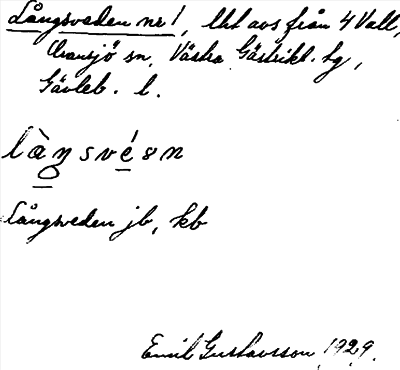 Långsveden nr 1, lht avs från 4 Vall,
Ovansjö sn, Västra Gästrikl. tg,
Gävleb. l.
làŋsvésn
Långsveden jb, kb
Emil Gustavsson 1929.